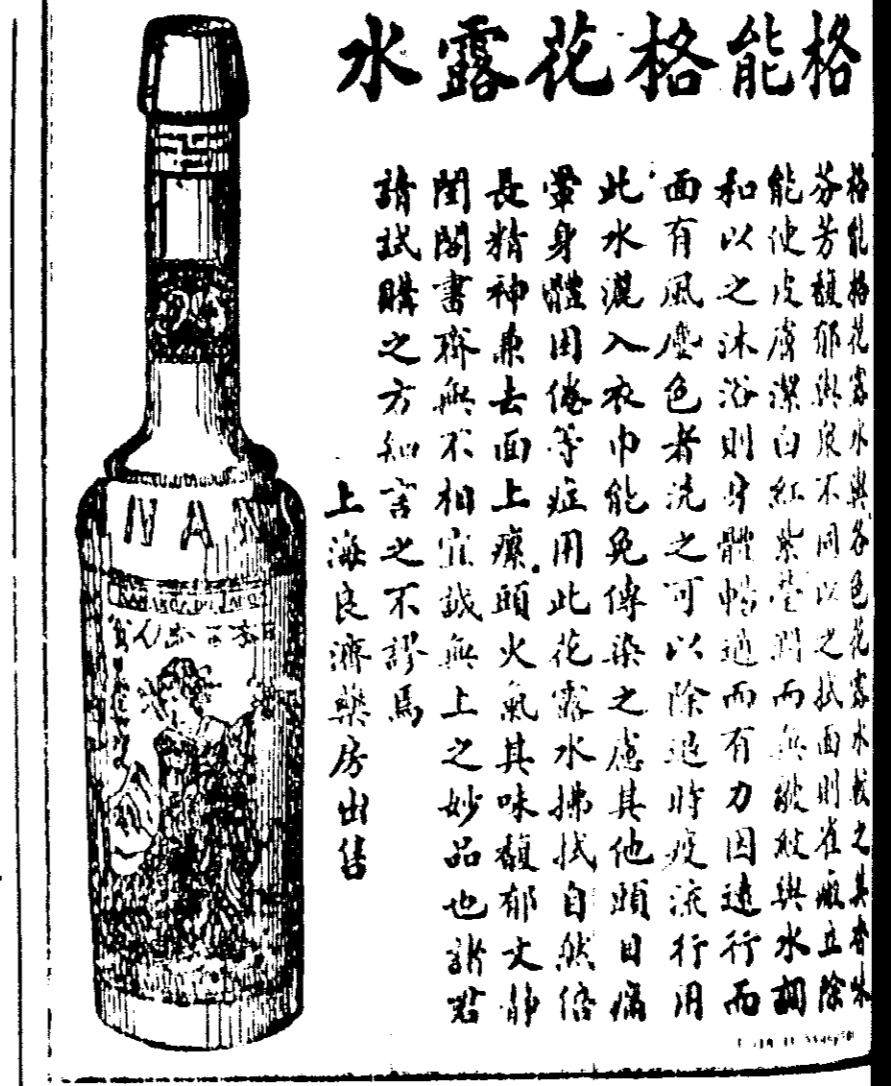 格能格花露水
格能格花露水與各色花露水較之其香味
芬芳馥郁與衆不同以之拭面則雀瘢立除
能使皮膚潔白紅紫瑩潤而無皴皮與水調
和以之沐浴則身體暢適而有力因遠行而
面有風塵色者洗之可以除退時疫流行用
此水灑入衣巾能免傳染之慮其他頭目痛
暈身體困倦等症用此花露水拂拭自然倍
長精神兼去面上瘰頭火氣其味馥郁文靜
閨閣書齋無不相宜誠無上之妙品也諸君
請試購之方知言之不謬焉
上海良濟藥房出售
NAN